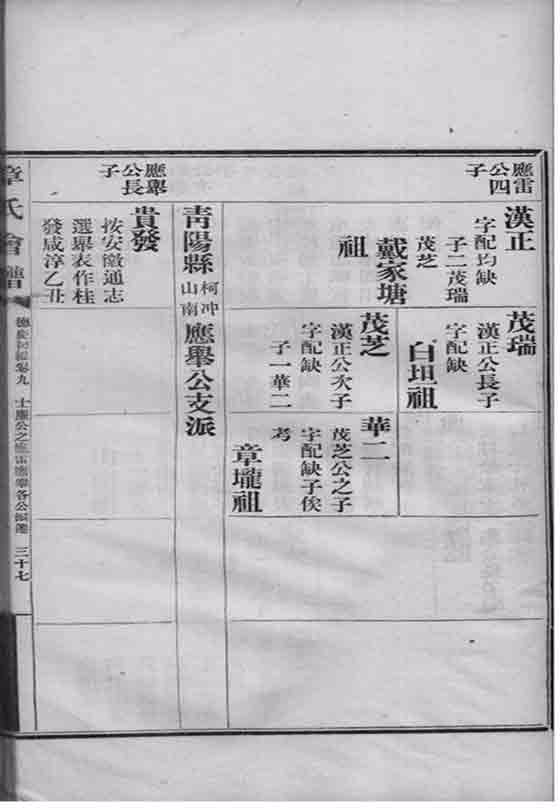 應雷
公四
子
漢正
字配均缺
子二茂瑞
茂芝
戴家塘
祖
茂瑞
漢正公長子
字配缺
白坦祖
茂芝
漢正公次子
字配缺
子一華二
華二
茂芝公之子
字配缺子俟
考
章壠祖
青陽縣
柯冲
山南
應舉公支派
應舉
公長
子
貴發
按安徽通志
選舉表作桂
發咸淳乙丑
章氏會譜
德慶初編卷九
三十七